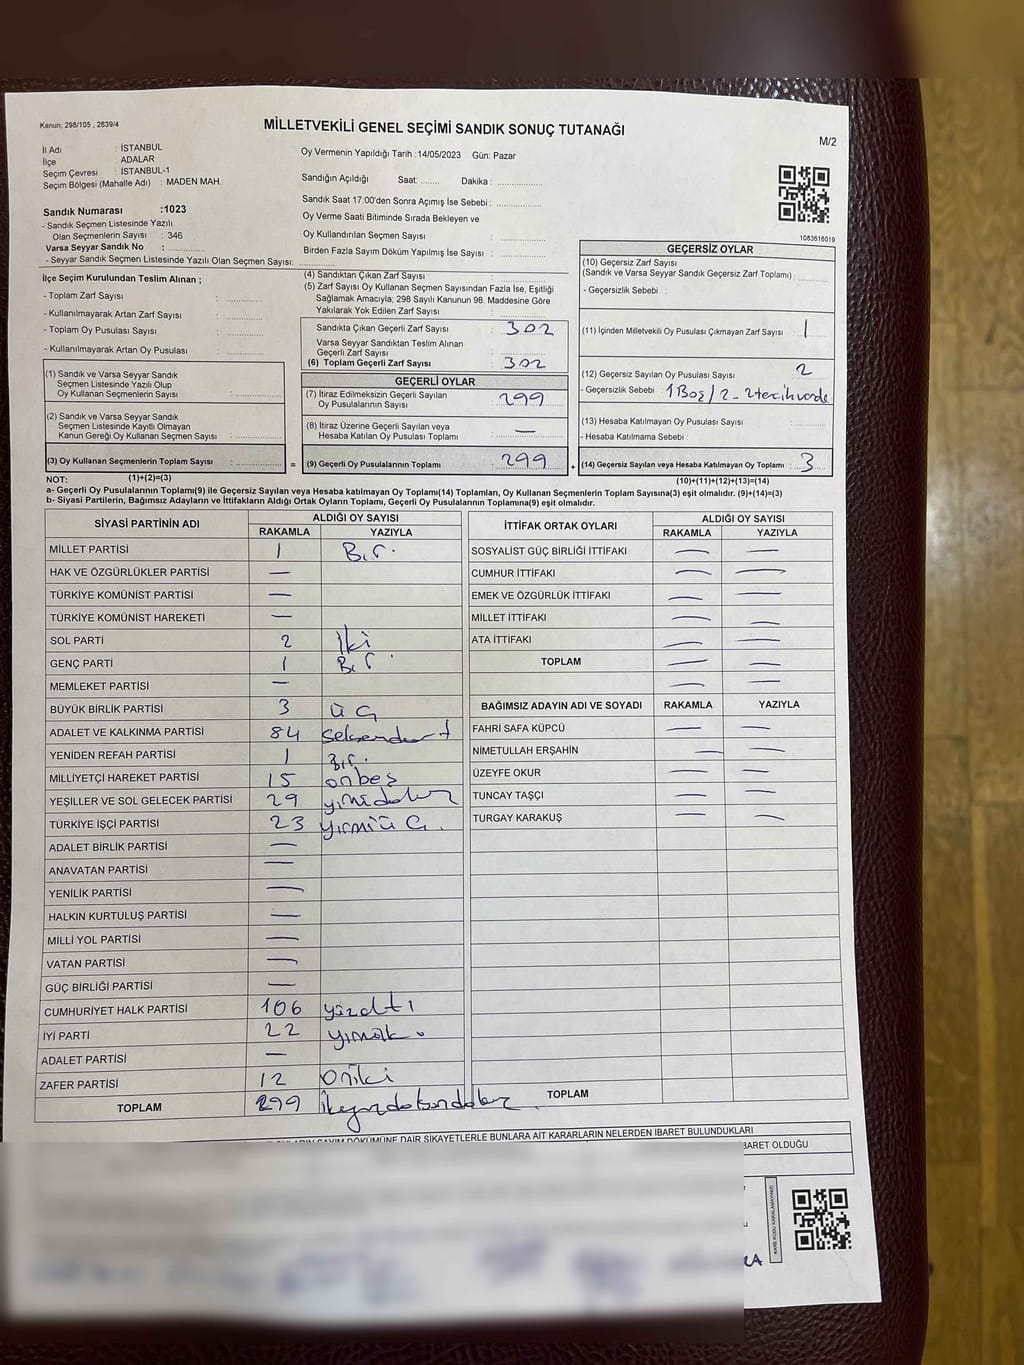 Kanun: 298/105 , 2839/4
MİLLETVEKİLİ GENEL SEÇİMİ SANDIK SONUÇ TUTANAĞI
M/2
İl Adı : İSTANBUL
İlçe ADALAR
Seçim Çevresi : İSTANBUL-1
Seçim Bölgesi (Mahalle Adı) : MADEN MAH.
Sandık Numarası :1023
- Sandık Seçmen Listesinde Yazılı
Olan Seçmenlerin Sayısı : 346
Varsa Seyyar Sandık No :
- Seyyar Sandık Seçmen Listesinde Yazılı Olan Seçmen Sayısı:
Oy Vermenin Yapıldığı Tarih :14/05/2023 Gün: Pazar
Sandığın Açıldığı Saat: Dakika :
Sandık Saat 17:00'den Sonra Açımış İse Sebebi :
Oy Verme Saati Bitiminde Sırada Bekleyen ve
Oy Kullandırılan Seçmen Sayısı :
Birden Fazla Sayım Döküm Yapılmış İse Sayısı :
1083616019
İlçe Seçim Kurulundan Teslim Alınan ;
- Toplam Zarf Sayısı :
- Kullanılmayarak Artan Zarf Sayısı :
- Toplam Oy Pusulası Sayısı :
- Kullanılmayarak Artan Oy Pusulası :
(1) Sandık ve Varsa Seyyar Sandık
Seçmen Listesinde Yazılı Olup
Oy Kullanan Seçmenlerin Sayısı :
(2) Sandık ve Varsa Seyyar Sandık
Seçmen Listesinde Kayıtlı Olmayan
Kanun Gereği Oy Kullanan Seçmen Sayısı :
(3) Oy Kullanan Seçmenlerin Toplam Sayısı :
(1)+(2)=(3)
(4) Sandıktan Çıkan Zarf Sayısı :
(5) Zarf Sayısı Oy Kullanan Seçmen Sayısından Fazla İse, Eşitliği
Sağlamak Amacıyla; 298 Sayılı Kanunun 98. Maddesine Göre
Yakılarak Yok Edilen Zarf Sayısı :
Sandıkta Çıkan Geçerli Zarf Sayısı : 302
Varsa Seyyar Sandıktan Teslim Alınan
Geçerli Zarf Sayısı :
(6) Toplam Geçerli Zarf Sayısı : 302
GEÇERLİ OYLAR
(7) İtiraz Edilmeksizin Geçerli Sayılan
Oy Pusulalarının Sayısı : 299
(8) İtiraz Üzerine Geçerli Sayılan veya
Hesaba Katılan Oy Pusulası Toplamı : —
= (9) Geçerli Oy Pusulalarının Toplamı : 299
GEÇERSİZ OYLAR
(10) Geçersiz Zarf Sayısı
(Sandık ve Varsa Seyyar Sandık Geçersiz Zarf Toplamı) :
- Geçersizlik Sebebi :
(11) İçinden Milletvekili Oy Pusulası Çıkmayan Zarf Sayısı : 1
(12) Geçersiz Sayılan Oy Pusulası Sayısı : 2
- Geçersizlik Sebebi : 1 Boş / 2 -
(13) Hesaba Katılmayan Oy Pusulası Sayısı :
- Hesaba Katılmama Sebebi :
+ (14) Geçersiz Sayılan veya Hesaba Katılmayan Oy Toplamı : 3
(10)+(11)+(12)+(13)=(14)
NOT:
a- Geçerli Oy Pusulalarının Toplamı(9) ile Geçersiz Sayılan veya Hesaba katılmayan Oy Toplamı(14) Toplamları, Oy Kullanan Seçmenlerin Toplam Sayısına(3) eşit olmalıdır. (9)+(14)=(3)
b- Siyasi Partilerin, Bağımsız Adayların ve İttifakların Aldığı Ortak Oyların Toplamı, Geçerli Oy Pusulalarının Toplamına(9) eşit olmalıdır.
SİYASİ PARTİNİN ADI ALDIĞI OY SAYISI
RAKAMLA YAZIYLA
MİLLET PARTİSİ 1 Bir
HAK VE ÖZGÜRLÜKLER PARTİSİ —
TÜRKİYE KOMÜNİST PARTİSİ —
TÜRKİYE KOMÜNİST HAREKETİ —
SOL PARTİ 2 İki
GENÇ PARTİ 1 Bir
MEMLEKET PARTİSİ —
BÜYÜK BİRLİK PARTİSİ 3 üç
ADALET VE KALKINMA PARTİSİ 84 seksendört
YENİDEN REFAH PARTİSİ 1 Bir
MİLLİYETÇİ HAREKET PARTİSİ 15 onbeş
YEŞİLLER VE SOL GELECEK PARTİSİ 29
TÜRKİYE İŞÇİ PARTİSİ 23 yirmiüç.
ADALET BİRLİK PARTİSİ —
ANAVATAN PARTİSİ —
YENİLİK PARTİSİ —
HALKIN KURTULUŞ PARTİSİ —
MİLLİ YOL PARTİSİ —
VATAN PARTİSİ —
GÜÇ BİRLİĞİ PARTİSİ —
CUMHURİYET HALK PARTİSİ 106 yüzaltı
İYİ PARTİ 22
ADALET PARTİSİ —
ZAFER PARTİSİ 12 Oniki
TOPLAM 299
İTTİFAK ORTAK OYLARI ALDIĞI OY SAYISI
RAKAMLA YAZIYLA
SOSYALİST GÜÇ BİRLİĞİ İTTİFAKI — —
CUMHUR İTTİFAKI — —
EMEK VE ÖZGÜRLÜK İTTİFAKI — —
MİLLET İTTİFAKI — —
ATA İTTİFAKI — —
TOPLAM — —
— —
BAĞIMSIZ ADAYIN ADI VE SOYADI RAKAMLA YAZIYLA
FAHRİ SAFA KÜPCÜ — —
NİMETULLAH ERŞAHİN — —
ÜZEYFE OKUR — —
TUNCAY TAŞÇI — —
TURGAY KARAKUŞ — —
TOPLAM
SAYIM DÖKÜMÜNE DAİR ŞİKAYETLERLE BUNLARA AİT KARARLARIN NELERDEN İBARET BULUNDUKLARI
BARET OLDUĞU